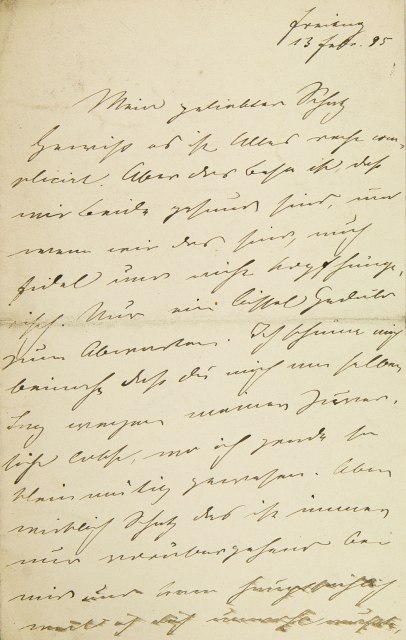 Freitag
13 Febr. 95
Mein geliebter Schatz
Gewiss es ist Alles recht com-
plicirt. Aber das beste ist, dass
wir beide gesund sind, und
wenn wir das sind, auch
fidel und nicht kopfhänge-
risch. Nur ein bissel Geduld
zum Abwarten. Ich schäme mich
beinahe dass du mich am selben
Tag wegen meiner
lobst, wo ich gerade so
kleinmütig gewesen. Aber
wirklich Schatz das ist immer
nur vorübergehend bei
mir und kam